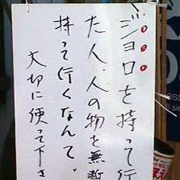 ジョロを持って行
た人、人の物を無断
持って行くなんて
大切に使って下さ